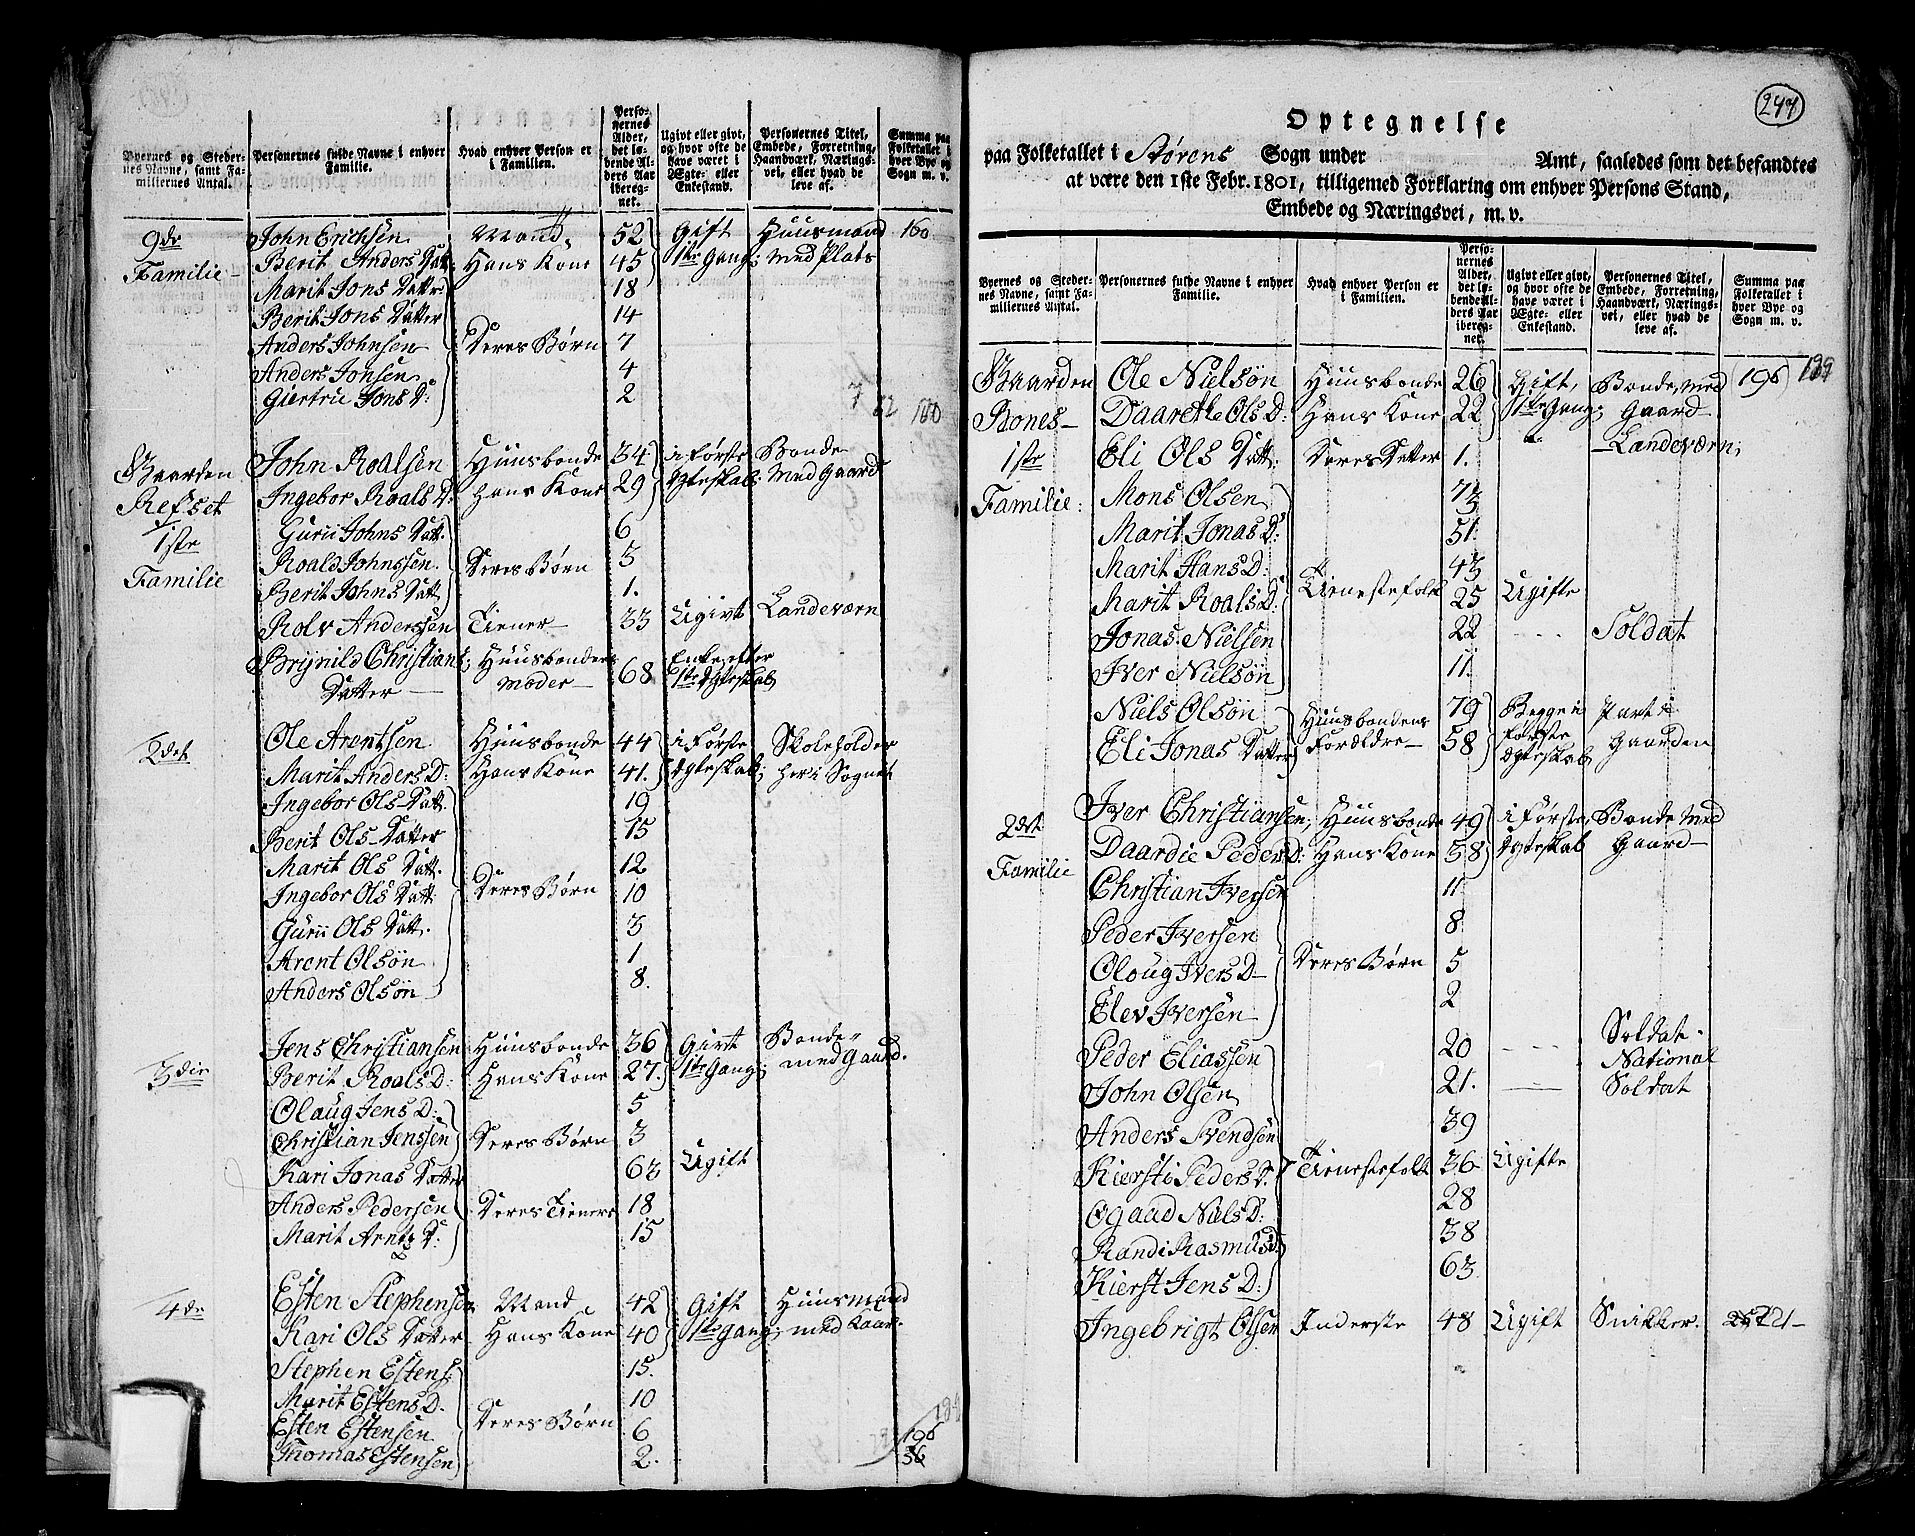 Byernes og Stedernes Navne, samt Familiernes Antal.
Personernes fulde Navne i enhver Familie.
Hvad enhver Person er i Familien.
Personernes Alder, det løbende Alders Aar iberegnet.
Ugivt eller givt, og hvor ofte de have været i Ægte- eller Enkestand.
Personernes Titel, Embede, Forretning, Haandværk, Næringsvei, eller hvad de leve af.
Summa paa Folketallet i hver Bye og Sogn m. v.
9de Familie John Erichsen Mand 52 Gift Huusmand 160
Berit Anders Dat: Hans Kone 45 1ste Gang med Plats
Marit Jons Datter 18
Berit Jons Datter 14
Anders Johnsen Deres Børn 7
Anders Jonsen 4
Giertrue Jons D: 2
7 160
Gaarden Refset 1ste Familie
John Roalsen Huusbonde 34 i første Bonde
Ingebor Roals D: Hans Kone 29 Ægteskab: med Gaard
Gurii Johns Datt. 6
Roald Johnssen Deres Børn 3
Berit Johns Datt 1.
Rolv Anderssen Tiener 33 Ugivt Landeværn
Brynild Christians Huusbondens 68 Enke efter
Datter Moder 1ste Ægteskab
2det Ole Arentsen Huusbonde 44 i Første Skoleholder
Marit Anders D: Hans Kone 41. Ægteskab; her i Sognet
Ingebor Ols Datt. 19
Berit Ols Datter 15
Marit Ols Datt. 12
Ingebor Ols Datt Deres Børn 10
Gurii Ols Datt. 3
Arent Olsøn 1
Anders Olsøn 8.
3die Jens Christiansen Huusbonde 36 Givt Bonde
Berit Roals D: Hans Kone 27. 1ste Gang; med Gaard.
Olaug Jens D: 5
Christian Jenssen Deres Børn 3
Kari Jonas Datter 63 Ugift
Anders Pedersen Deres Tienere 18
Marit Arntz D: 15
4de Esten Stephensen Mand 42 Gift Huusmand
Kari Ols Datter Hans Kone 40 1ste Gang; med
Stephen Estens: 15.
Marit Estens D. 10
Esten Estensen Deres Børn 6
Thomas Estensen 2.
196
36
247
Optegnelse
paa Folketallet i Størens Sogn under Amt, saaledes som det befandtes
at være den 1ste Febr. 1801, tilligemed Forklaring om enhver Persons Stand,
Embede og Næringsvei, m. v.
Byernes og Stedernes Navne, samt Familiernes Antal.
Personernes fulde Navne i enhver Familie.
Hvad enhver Person er i Familien.
Personernes Alder, det løbende Alders Aar iberegnet.
Ugivt eller givt, og hvor ofte de have været i Ægte- eller Enkestand.
Personernes Titel, Embede, Forretning, Haandværk, Næringsvei, eller hvad de leve af.
Summa paa Folketallet i hver Bye og Sogn m. v.
Gaarden Bones 1ste Familie:
Ole Nielsøn Huusbonde 26 Gift, Bonde, med 196
Daarethe Ols D: Hans Kone 22 1ste Gang; Gaard
Eli Ols Datt: Deres Datter 1. Landeværn;
Mons Olsen 73
Marit Jonas D: 51.
Marit Hans D: 43
Marit Roals D: Tienestefolk 25 Ugifte
Jonas Nielsen 22 Soldat
Iver Nielsøn 11.
Niels Olsøn Huusbondens 79 Begge i Part i
Eli Jonas Datter Forældre 58 Første Ægteskab Gaarden
2det Familie
Iver Christiansen; Huusbonde 49 i Første Bonde med
Daardie Peders D: Hans Kone 58 Ægteskab Gaard
Christian Iversen 11
Peder Iversen 8
Oloug Ivers D Deres Børn 5
Elev Iversen 2
Peder Eliassen 20 Soldat
National
John Olsen 21. Soldat
Anders Svendsen 39
Kiersti Peders D. Tienestefolk 36 Ugifte
Ogaad Niels D: 28
Randi Rasmus D: 38
Kierst Jens D: 63
Ingebrigt Olsen Inderste 48 Ugift Snikker. 221